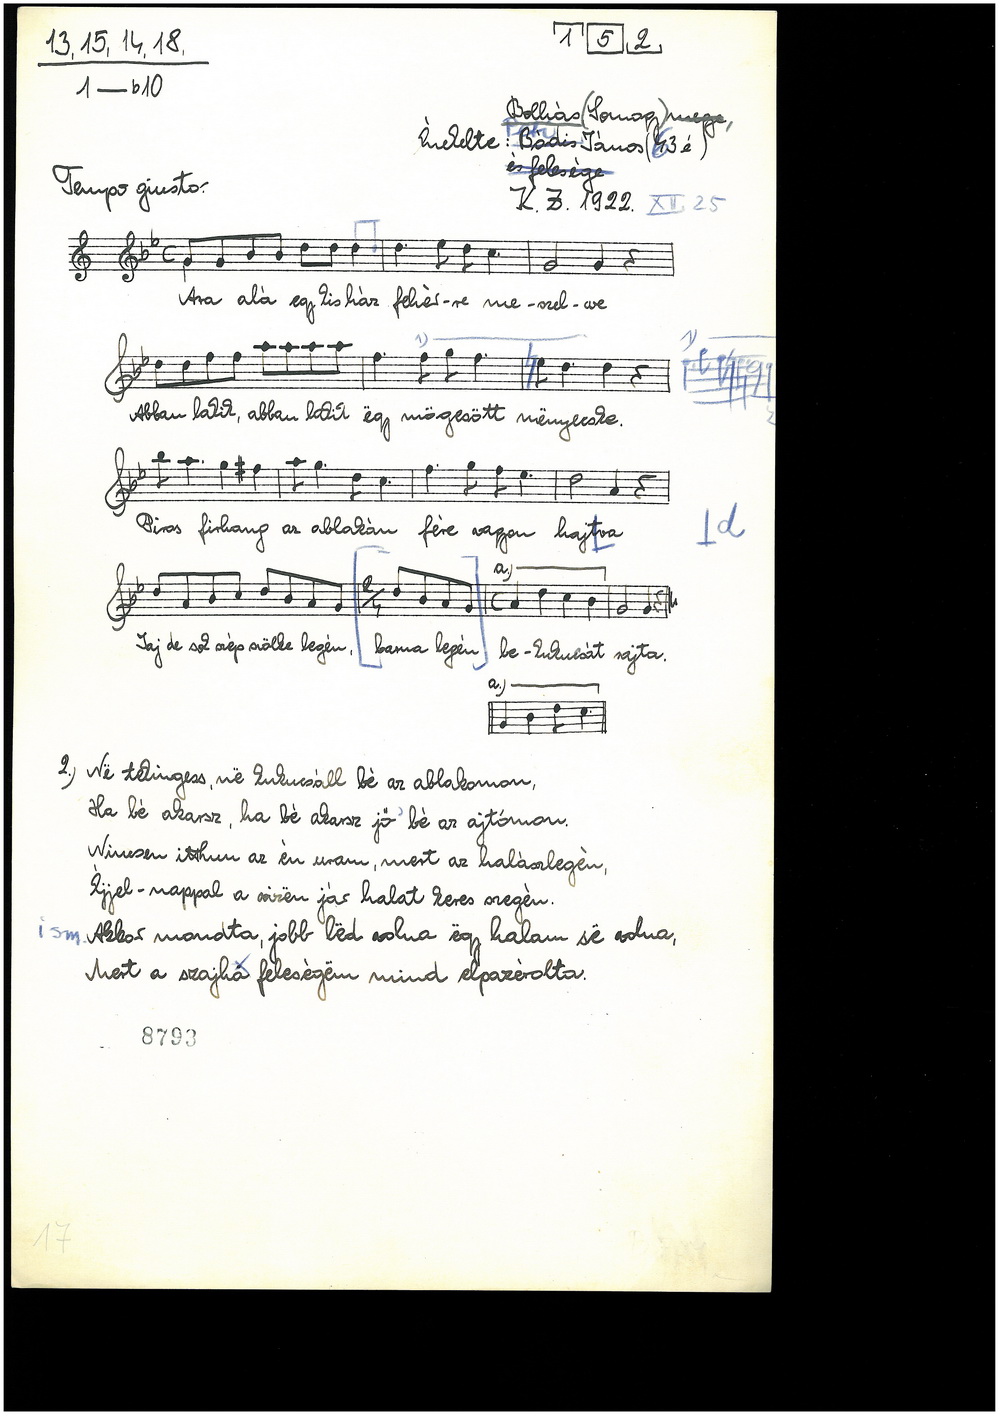 13, 15, 14, 18.
1 — b10
1 5 2
Bolhás (Somogy) mege,
Énekelte: Bódis János (43 é)
és felesége
K. Z. 1922. XII 25
Tempo giusto.
Ara alá egy kis ház fehér-re me-szel-ve
1)
1)
Abban lakik, abban lakik ëgy mögesött mënyecske.
Piros firhang az ablakán fére vagyon hajtva
1d
a.)
Jaj de sok szép szőke legén, barna legén be-kukucsát rajta.
a.)
2.) Në tekingess, në kukucsáll bé az ablakomon,
Ha bé akarsz, ha bé akarsz jő' bé az ajtómon.
Nincsen itthun az én uram, mert az halászlegén,
Éjjel-nappal a vizën jár halat keres szegén.
ism. Akkor mondta, jobb lëd volna ëgy halam së volna,
Mert a szajhá feleségëm mind elpazérolta.
8793
17